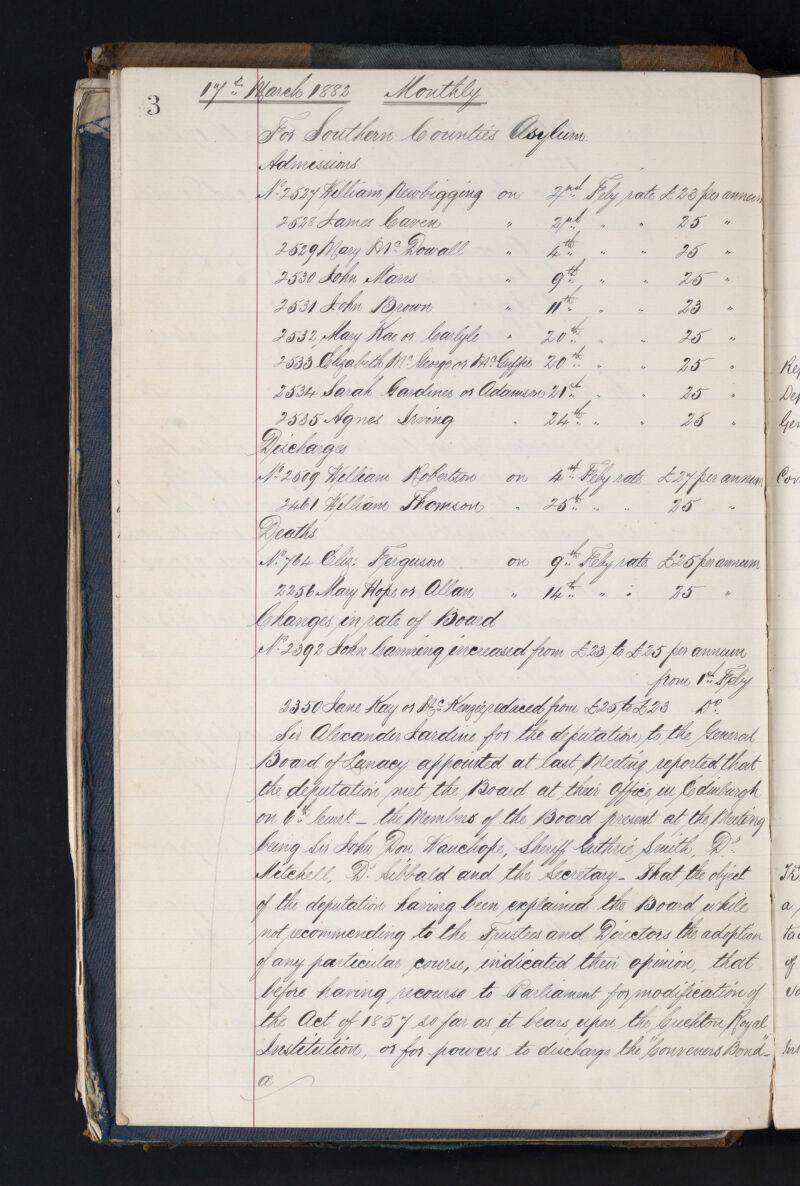 3
17th March 1882 Monthly
For Southern Counties Asylum.
Admissions
No. 2527 William Newbigging on 2nd Feby rate £23 per annum
2528 James Caven " 2nd " " 25 "
2529 Mary McDowall " 4th " " 25 "
2530 John Marrs " 9th " " 25 "
2531 John Brown " 11th " " 23 "
2532 Mary Kae or Carlyle " 20th " " 25 "
2533 Elizabeth McGeorge or McGuffie 20th " " 25 "
2534 Sarah Gardiner or Adamson 21st " " 25 "
2535 Agnes Irving " 24th " " 25 "
Discharges
No. 2509 William Robertson on 4th Feby rate £27 per annum
2461 William Thomson " 25th " " 25 "
Deaths
No. 764 Eliz: Ferguson on 9th Feby rate £25 per annum
2256 Mary Hope or Allan " 14th " " 25 "
Changes in rate of Board
No. 2392 John Canning increased from £23 to £25 per annum
from 1st Feby
2350 Jane Kay or McKenzie reduced from £25 to £23 Do.
Sir Alexander Jardine for the deputation to the General
Board of Lunacy appointed at last Meeting reported that
the deputation met the Board at their Office in Edinburgh
on 6th Curst. – the Members of the Board present at the Meeting
being Sir John Don Wauchope, Sheriff Guthrie Smith, Dr.
Mitchell, Dr. Sibbald and the Secretary – That the object
of the deputation having been explained the Board while
not recommending to the Trustees and Directors the adoption
of any particular course, indicated their opinion, that
before having recourse to Parliament for modification of
the Act of 1857 so far as it bears upon the Crichton Royal
Institution, or for powers to discharge the "Conveners Bond" –
a